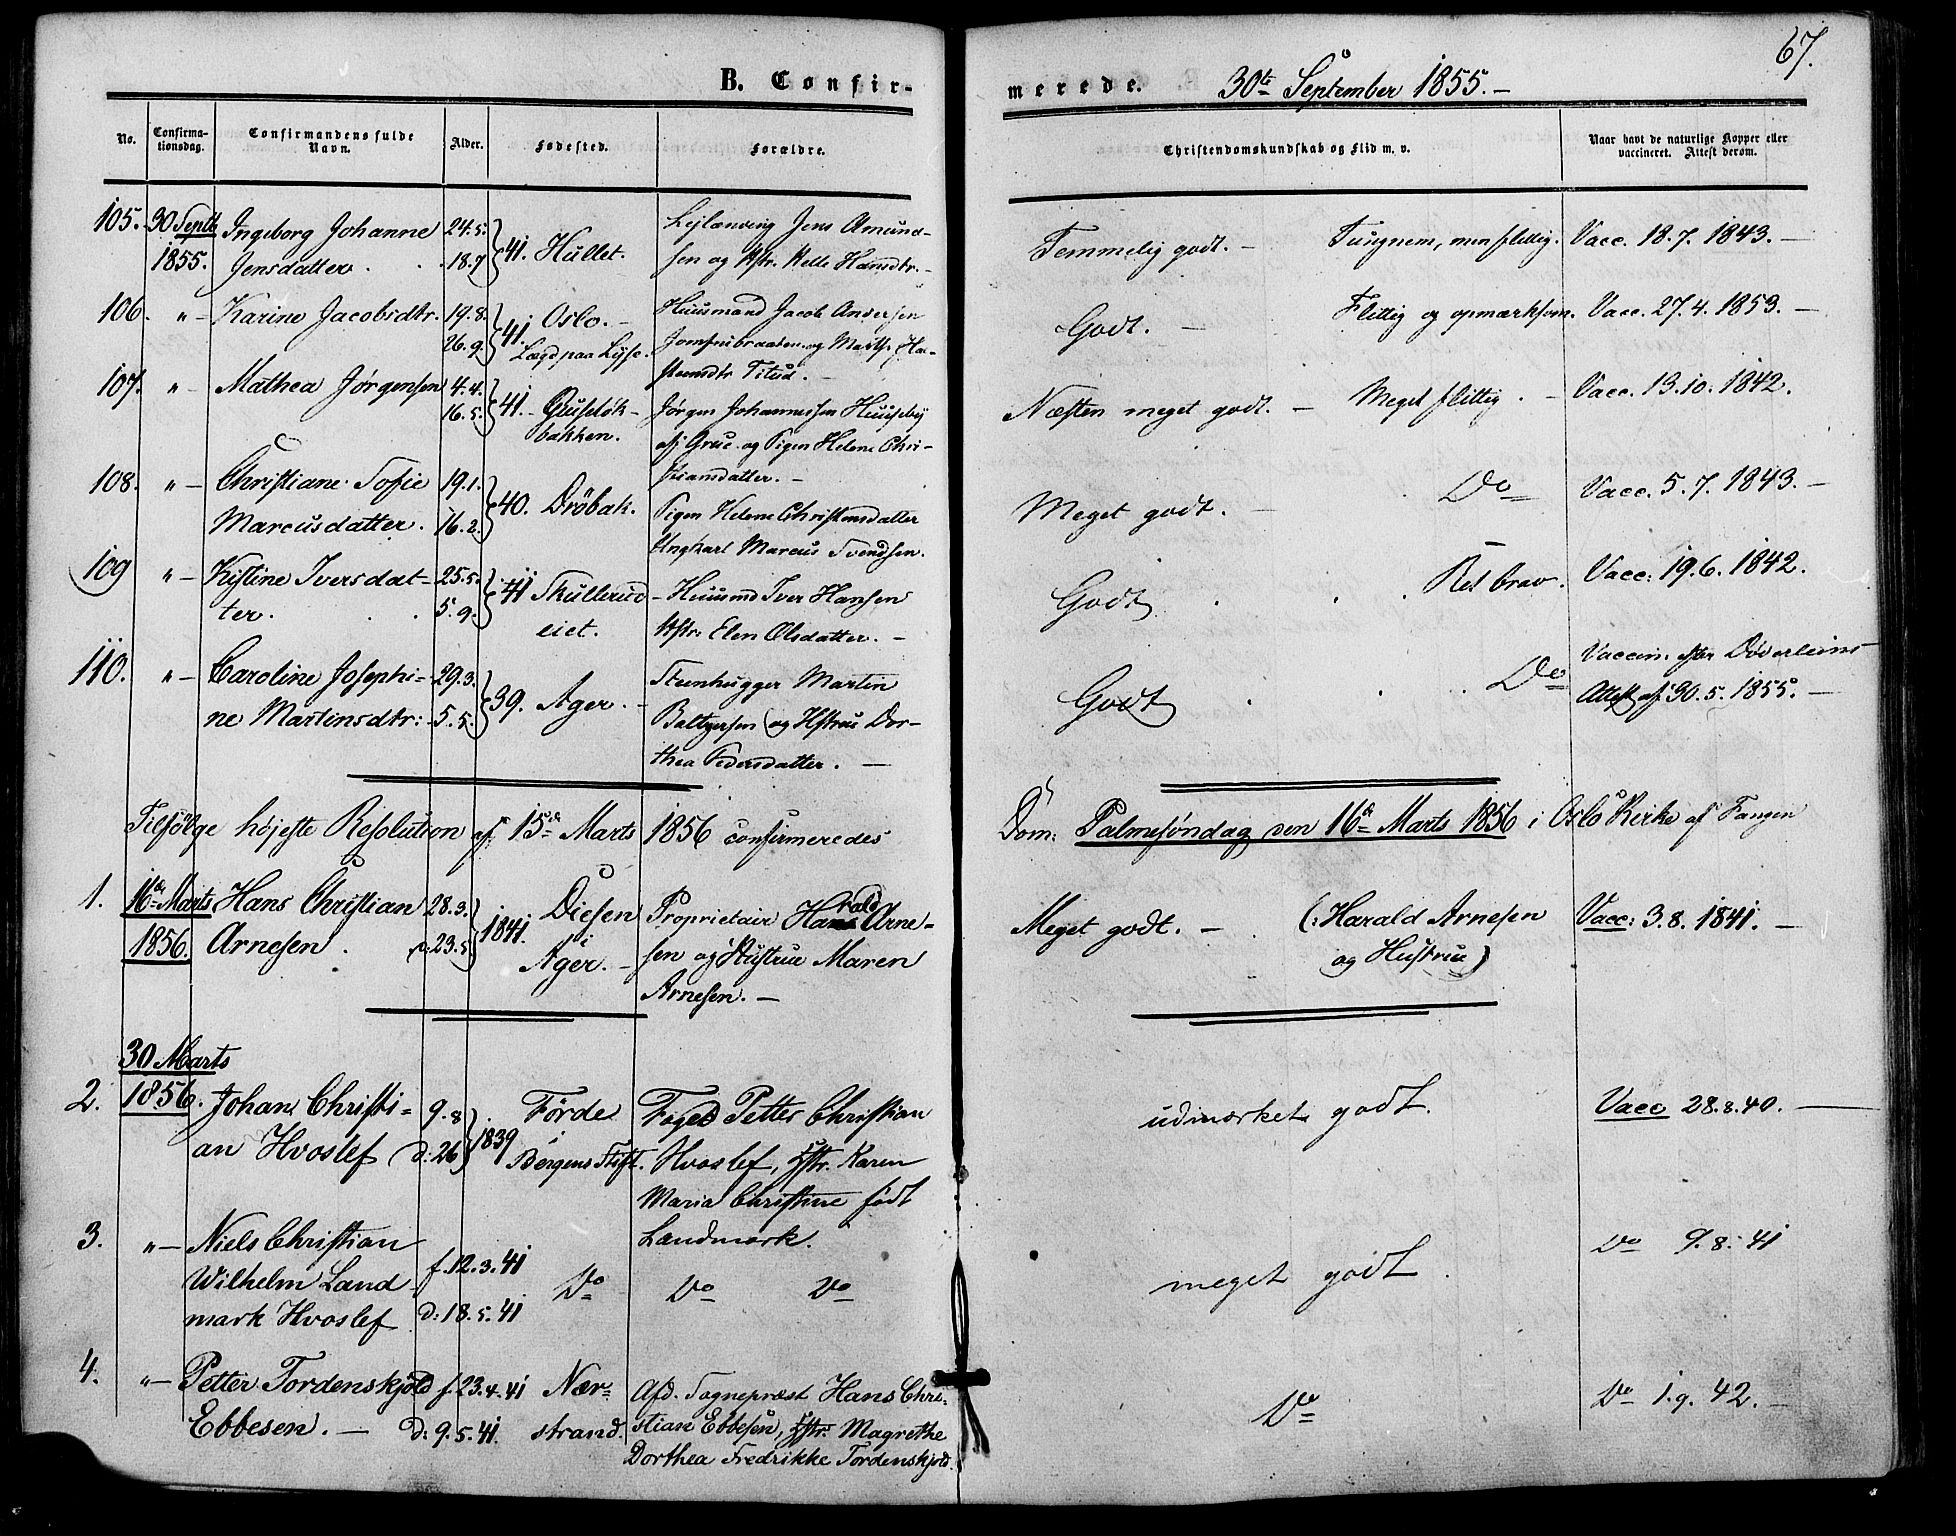 67.
B. Confirmerede. 30te September 1855.
No. Confirmationsdag. Confirmandens fulde Navn. Alder. Fødested. Forældre. Christendomskundskab og Flid m. v. Naar havt de naturlige Kopper eller vaccineret. Attest derom.
105. 30 Septb Ingeborg Johanne 24.5. 41. Hullet. Lejlænding Jens Amund- Temmelig godt. Tungnem, men flittig. Vacc. 18.7. 1843.
1855. Jensdatter. 18.7 sen og Hstr. Helle Hansdtr.
106. " Karine Jacobsdtr. 19.8. 41. Oslo. Huusmand Jacob Andersen Godt. Flittig og opmærksom. Vacc. 27.4. 1853.
26.9. Lægd paa Lyse. og Marthe
107. " Mathea Jørgensen 4.4. 41. Jørgen Johannessen Huuseby Næsten meget godt. Meget flittig. Vacc. 13.10. 1842.
16.5. bakken. af Grue og Pigen Helene Chri-
stiansdatter.
108. " Christiane Sofie 19.1. 40. Drøbak. Pigen Helene Christensdatter Meget godt. Do Vacc. 5.7. 1843.
Marcusdatter. 16.2. Ungkarl Marcus Svendsen.
109 " Kistine Iversdat- 25.5. 41 Skullerud- Huusmd Iver Hansen Godt Ret brav. Vacc: 19.6. 1842.
ter. 5.9. eiet. Hstr. Elen Olsdatter.
110. " Caroline Josephi- 29.3. 39. Ager. Steenhugger Martin Godt Do Vaccin. efter Döderleins
ne Martinsdtr: 5.5. Baltzersen og Hstrue Dor- Attest af 30.5. 1855.
thea Pedersdatter.
Tilfølge højeste Resolution af 15de Marts 1856 confirmeredes Dom: Palmesøndag den 16de Marts 1856 i Oslo Kirke af Fangen
1. 16de Marts Hans Christian 28.3. 1841. Diesen Proprietair Harald Arne- Meget godt. (: Harald Arnesen Vacc: 3.8. 1841.
1856. Arnesen. d. 23.5 i Ager. sen og Hustrue Maren og Hustrue)
Arnesen.
30 Marts
2. 1856. Johan Christi- 9.8 1839 Förde Foged Petter Christian udmærket godt. Vacc 28.8.40.
an Hvoslef d: 26 Bergens Stift. Hvoslef, Hstr. Karen
Maria Christine født
Landmark.
3. " Niels Christian f. 12.3.41 Do Do Do meget godt. Do 9.8.41
Wilhelm Land
mark Hvoslef d: 18.5.41
4. " Petter Tordenskjold f. 23.4.41 Nær- Afd. Sognepræst Hans Chri- Do Do 1.9.42.
Ebbesen. d: 9.5.41. strand. stian Ebbesen, Hstr. Magrethe
Dorthea Fredrikke Tordenskjold.